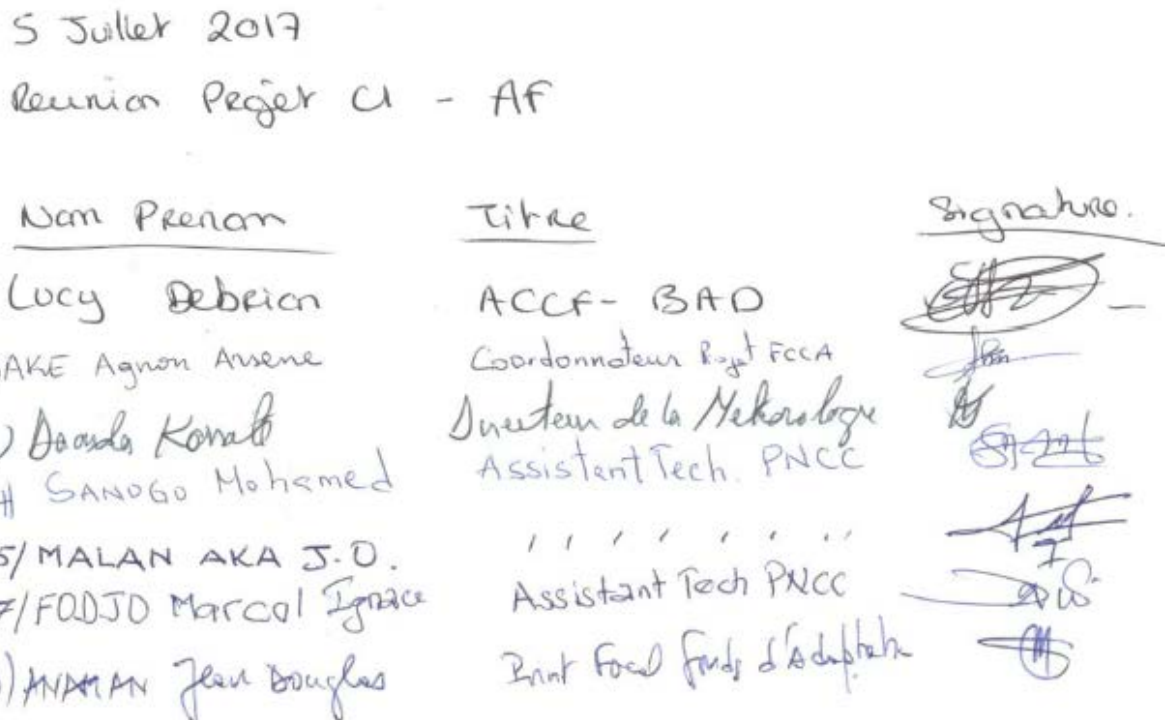 5 Juillet 2017
Reunion Projet CI - AF
Nom Prenom Titre Signature.
Lucy Debrion ACCF- BAD
AKE Agnon Arsene Coordonnateur Projet FCCA
) Daouda Konaté Directeur de la Météorologie
SANOGO Mohamed Assistant Tech. PNCC
5/ MALAN AKA J.O. ,, ,, ,, ,,
7/ FODJO Marcel Ignace Assistant Tech PNCC
) ANAMAN Jean Douglas Point Focal Fonds d'Adaptation